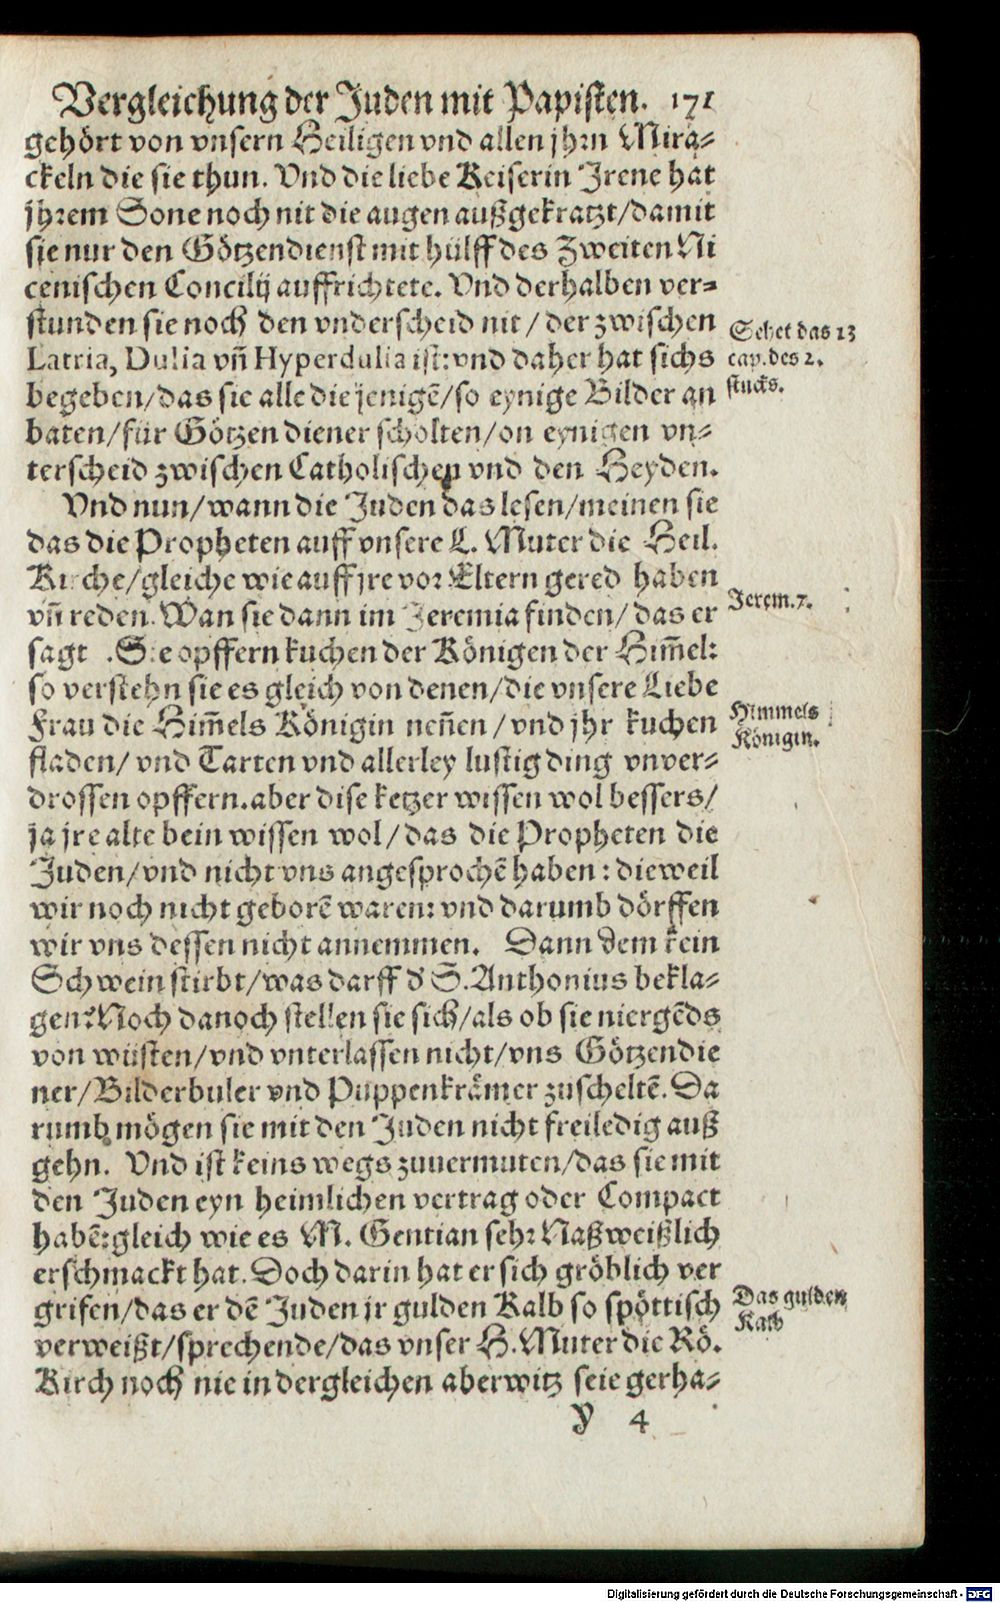 Vergleichung der Juden mit Papisten. 171
gehört von vnsern Heiligen vnd allen jhrn Mira-
ckeln die sie thun. Vnd die liebe Keiserin Irene hat
jhrem Sone noch nit die augen außgekratzt/damit
sie nur den Götzendienst mit hülff des Zweiten Ni
cenischen Concilij auffrichtete. Vnd derhalben ver-
stunden sie noch den vnderscheid nit/ der zwischen
Latria, Dulia vñ Hyperdulia ist: vnd daher hat sichs
begeben/das sie alle die jenigẽ/so eynige Bilder an
baten/für Götzen diener scholten/on eynigen vn-
terscheid zwischen Catholischen vnd den Heyden.
Sehet das 13
cap. des 2.
stucks.
Vnd nun/wann die Juden das lesen/meinen sie
das die Propheten auff vnsere L. Muter die Heil.
Kirche/gleiche wie auff jre vor Eltern gered haben
vñ reden. Wan sie dann im Jeremia finden/das er
sagt .Sie opffern kuchen der Königen der Him̃el:
so verstehn sie es gleich von denen/die vnsere Liebe
Frau die Him̃els Königin neñen/vnd jhr kuchen
fladen/ vnd Tarten vnd allerley lustig ding vnver-
drossen opffern.aber dise ketzer wissen wol bessers/
ja jre alte bein wissen wol/das die Propheten die
Juden/vnd nicht vns angesprochẽ haben: dieweil
wir noch nicht geborẽ waren: vnd darumb dörffen
wir vns dessen nicht annemmen. Dann dem kein
Schwein stirbt/was darff d' S.Anthonius bekla-
gen? Noch danoch stellen sie sich/als ob sie niergẽds
von wüsten/vnd vnterlassen nicht/vns Götzendie
ner/Bilderbuler vnd Puppenkrämer zuscheltẽ. Da
rumb mögen sie mit den Juden nicht freiledig auß
gehn. Vnd ist keins wegs zuuermuten/das sie mit
den Juden eyn heimlichen vertrag oder Compact
habẽ: gleich wie es M. Gentian sehr Naßweißlich
erschmackt hat. Doch darin hat er sich gröblich ver
grifen/das er dẽ Juden jr gulden Kalb so spöttisch
verweißt/sprechende/das vnser H.Muter die Rö.
Kirch noch nie in dergleichen aberwitz seie gerha-
Jerem.7.
Himmels
Königin.
Das gulden
Kalb
Y 4
Digitalisierung gefördert durch die Deutsche Forschungsgemeinschaft - DFG